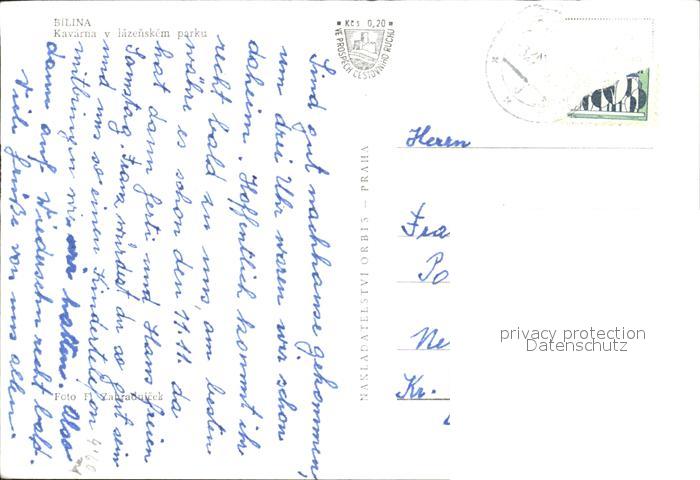 BÍLINA
Kavárna v lázeňském parku
Kčs 0,20
VE PROSPĚCH CESTOVNÍHO RUCHU
Sind gut nachhause gekommen,
um drei Uhr waren wir schon
daheim. Hoffentlich kommt ihr
recht bald zu uns, am besten
wäre es schon den 11.11. da
hat dann Gerti und Hans freien
Samstag. Franz würdest du so gut sein
und uns so einen Kindertelefon
mitbringen wir hätten. Also
dann auf Wiedersehn recht bald.
Viele Grüße von uns allen.
NAKLADATELSTVÍ ORBIS — PRAHA
Herrn
Fra
Po
Ne
Kr.
privacy protection
Datenschutz
Foto Fr. Zahradníček